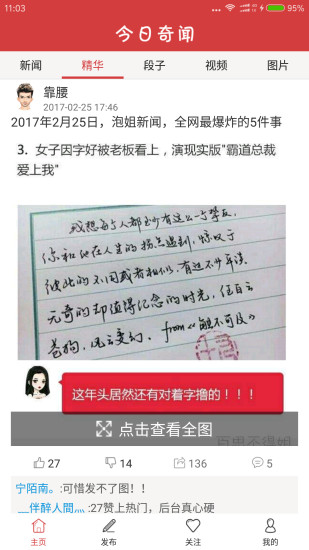 11:03
95%
今日奇闻
新闻 精华 段子 视频 图片
靠腰
2017-02-25 17:46
2017年2月25日，泡姐新闻，全网最爆炸的5件事
3. 女子因字好被老板看上，演现实版"霸道总裁
爱上我"
我想每个人都至少有这么一个挚友，
你和他在人生的拐点遇到，惊叹于
彼此的不同或者相似，有过不少平淡
无奇的却值得纪念的时光，任白云
苍狗，风云变幻。from《触不可及》
这年头居然还有对着字撸的！！！
点击查看全图
百思不得姐
27 14 136 5
宁陌南。:可惜发不了图！：！
__伴醉人間灬 :27赞上热门，后台真心硬
主页 发布 关注 我的